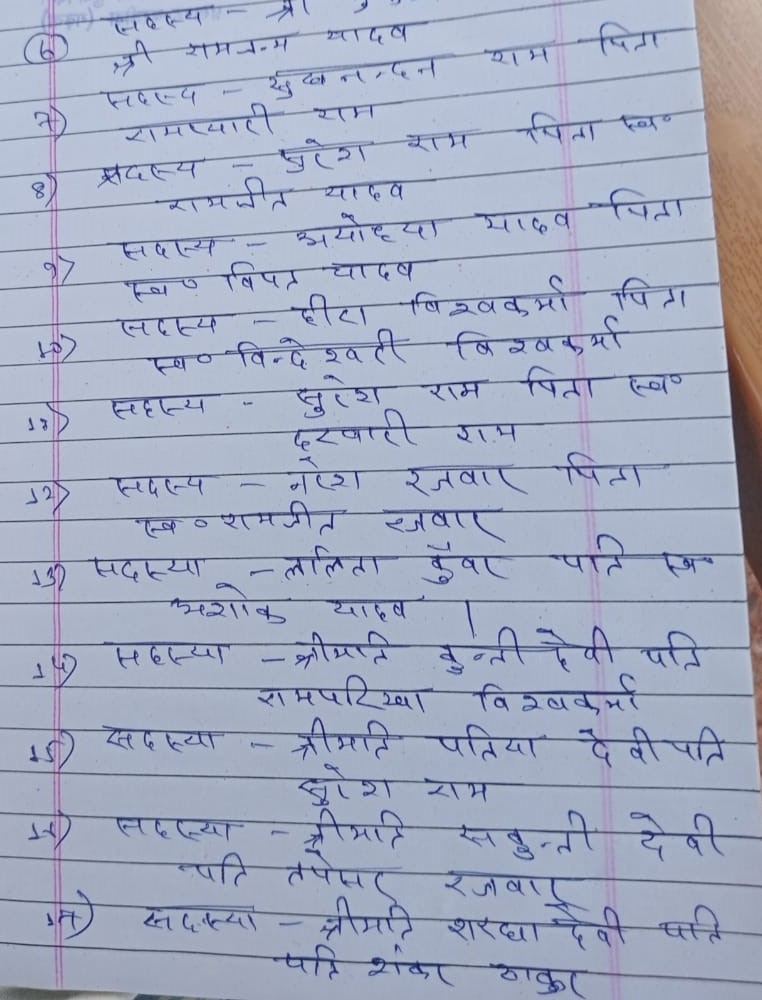 सदस्य - श्री
(6) श्री रामजन्म यादव
सदस्य - सुखनन्दन राम पिता
7) रामप्यारी राम
सदस्य - सुरेश राम पिता स्व०
8) रामजीत यादव
सदस्य - अयोध्या यादव पिता
9) स्व० विपत यादव
सदस्य - हीरा विश्वकर्मा पिता
10) स्व० विन्देश्वरी विश्वकर्मा
सदस्य - सुरेश राम पिता स्व०
11) दरबारी राम
12) सदस्य - नरेश रजवार पिता
स्व० रामजीत रजवार
13) सदस्या - ललिता कुँवर पति स्व०
अशोक यादव |
14) सदस्या - श्रीमति कुन्ती देवी पति
रामपरिखा विश्वकर्मा
15) सदस्या - श्रीमति पतिया देवी पति
सुरेश राम
16) सदस्या - श्रीमति सकुन्ती देवी
पति तपेसर रजवार
17) सदस्या - श्रीमति शारदा देवी पति
पति शंकर ठाकुर